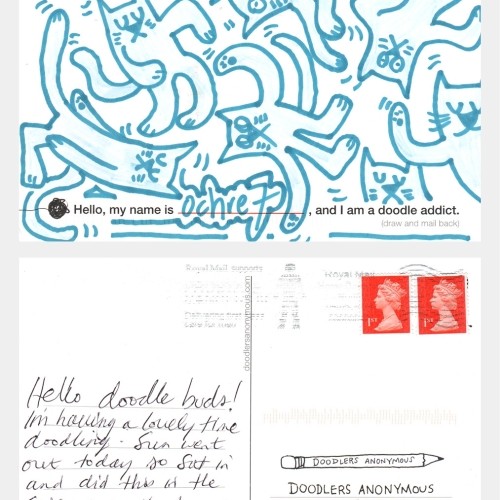 Hello, my name is ochre7, and I am a doodle addict.
(draw and mail back)
Royal Mail supports
Royal Mail
doodlersanonymous.com
1ST 1ST
Hello doodle buds!
I'm having a lovely time
doodling. Sun went
out today so sat in
and did this in the
DOODLERS ANONYMOUS
DOODLERS ANONYMOUS